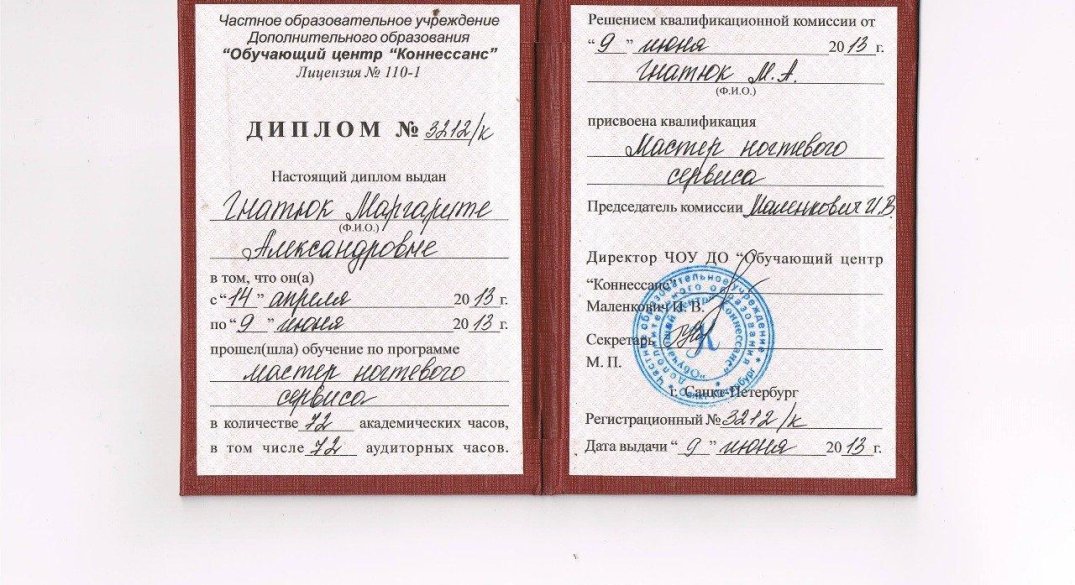 Частное образовательное учреждение
Дополнительного образования
“Обучающий центр “Коннессанс”
Лицензия № 110-1
ДИПЛОМ № 3212/к
Настоящий диплом выдан
Гнатюк Маргарите
(Ф.И.О.)
Александровне
в том, что он(а)
с “14” апреля 2013 г.
по “9” июня 2013 г.
прошел(шла) обучение по программе
мастер ногтевого
сервиса
в количестве 72 академических часов,
в том числе 72 аудиторных часов.
Решением квалификационной комиссии от
“9” июня 2013 г.
Гнатюк М.А.
(Ф.И.О.)
присвоена квалификация
Мастер ногтевого
сервиса
Председатель комиссии Маленкович И.В.
Директор ЧОУ ДО “Обучающий центр
“Коннессанс”
Маленкович И. В.
Секретарь
М. П.
г. Санкт-Петербург
Регистрационный № 3212/к
Дата выдачи “9” июня 2013 г.
Частное образовательное учреждение
дополнительного образования
“Обучающий центр “Коннессанс”
К